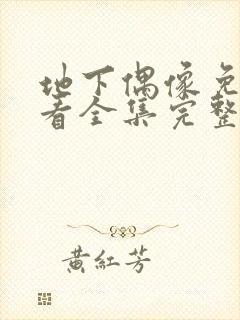 地下偶像免
看全集完整
黄紅芳